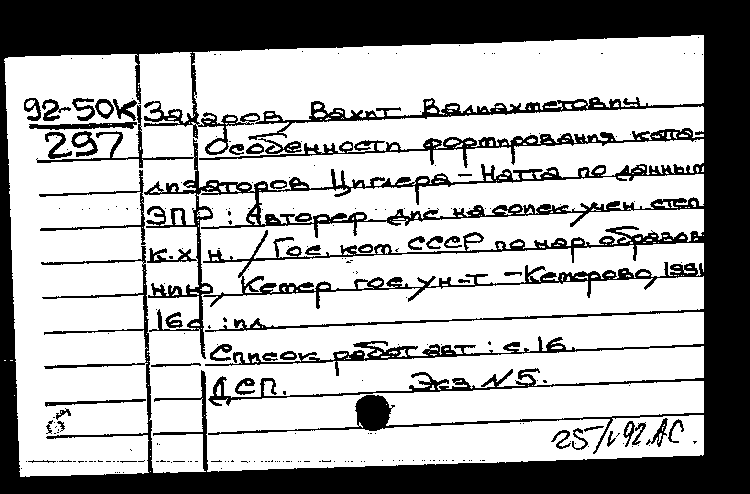 92-50К Захаров, Вахит Валиахметович.
297 Особенности формирования ката-
лизаторов Циглера-Натта по данным
ЭПР : Автореф. дис. на соиск. учен. степ.
к.х.н. / Гос. ком. СССР по нар. образова-
нию, Кемер. гос. ун-т. - Кемерово, 1991
16с. : ил.
Список работ авт : с. 16.
ДСП. Экз. N5.
25/V 92. АС.